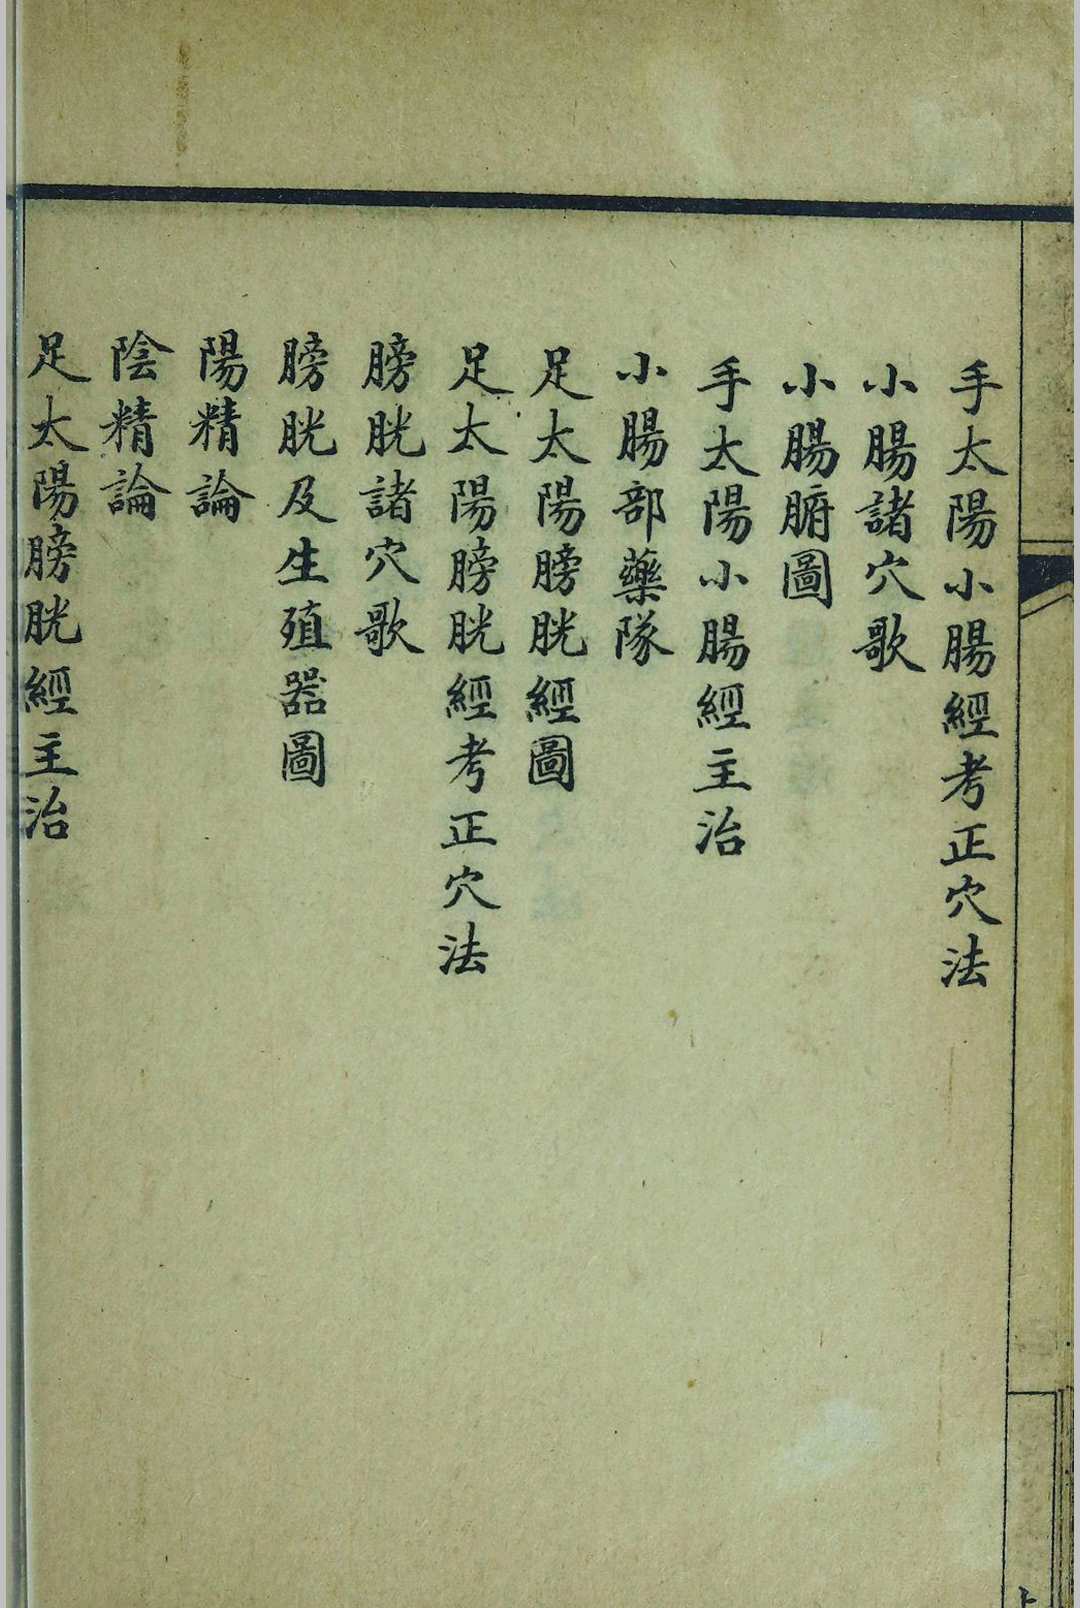 手太陽小腸經考正穴法
小腸諸穴歌
小腸腑圖
手太陽小腸經主治
小腸部藥隊
足太陽膀胱經圖
足太陽膀胱經考正穴法
膀胱諸穴歌
膀胱及生殖器圖
陽精論
陰精論
足太陽膀胱經主治